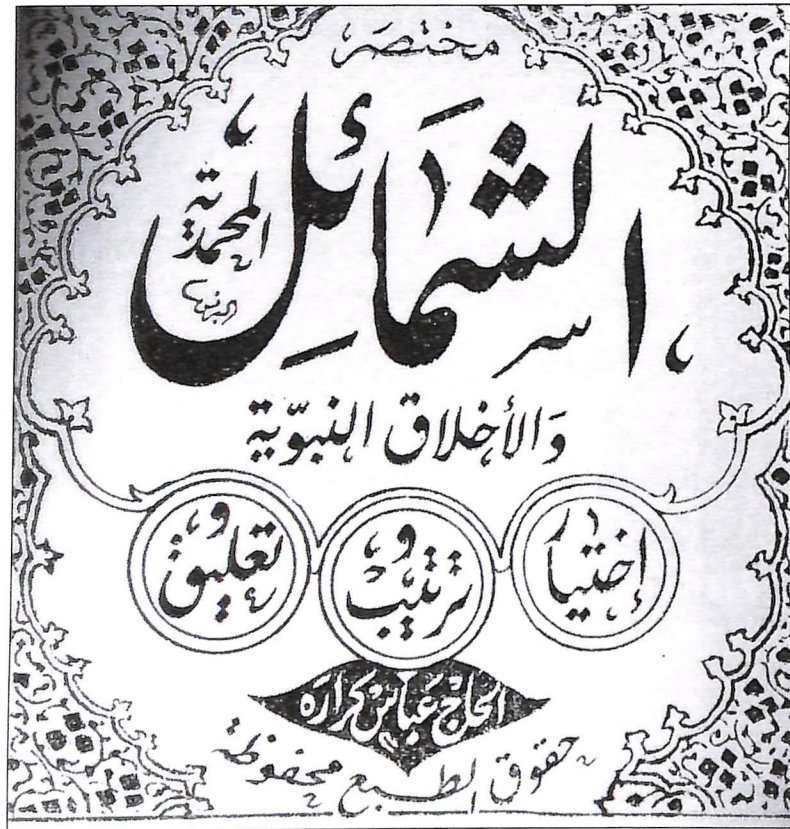 مختصر
الشمائل المحمدية
والأخلاق النبويّة
إختيار وترتيب وتعليق
الحاج عباس كرارة
حقوق الطبع محفوظة